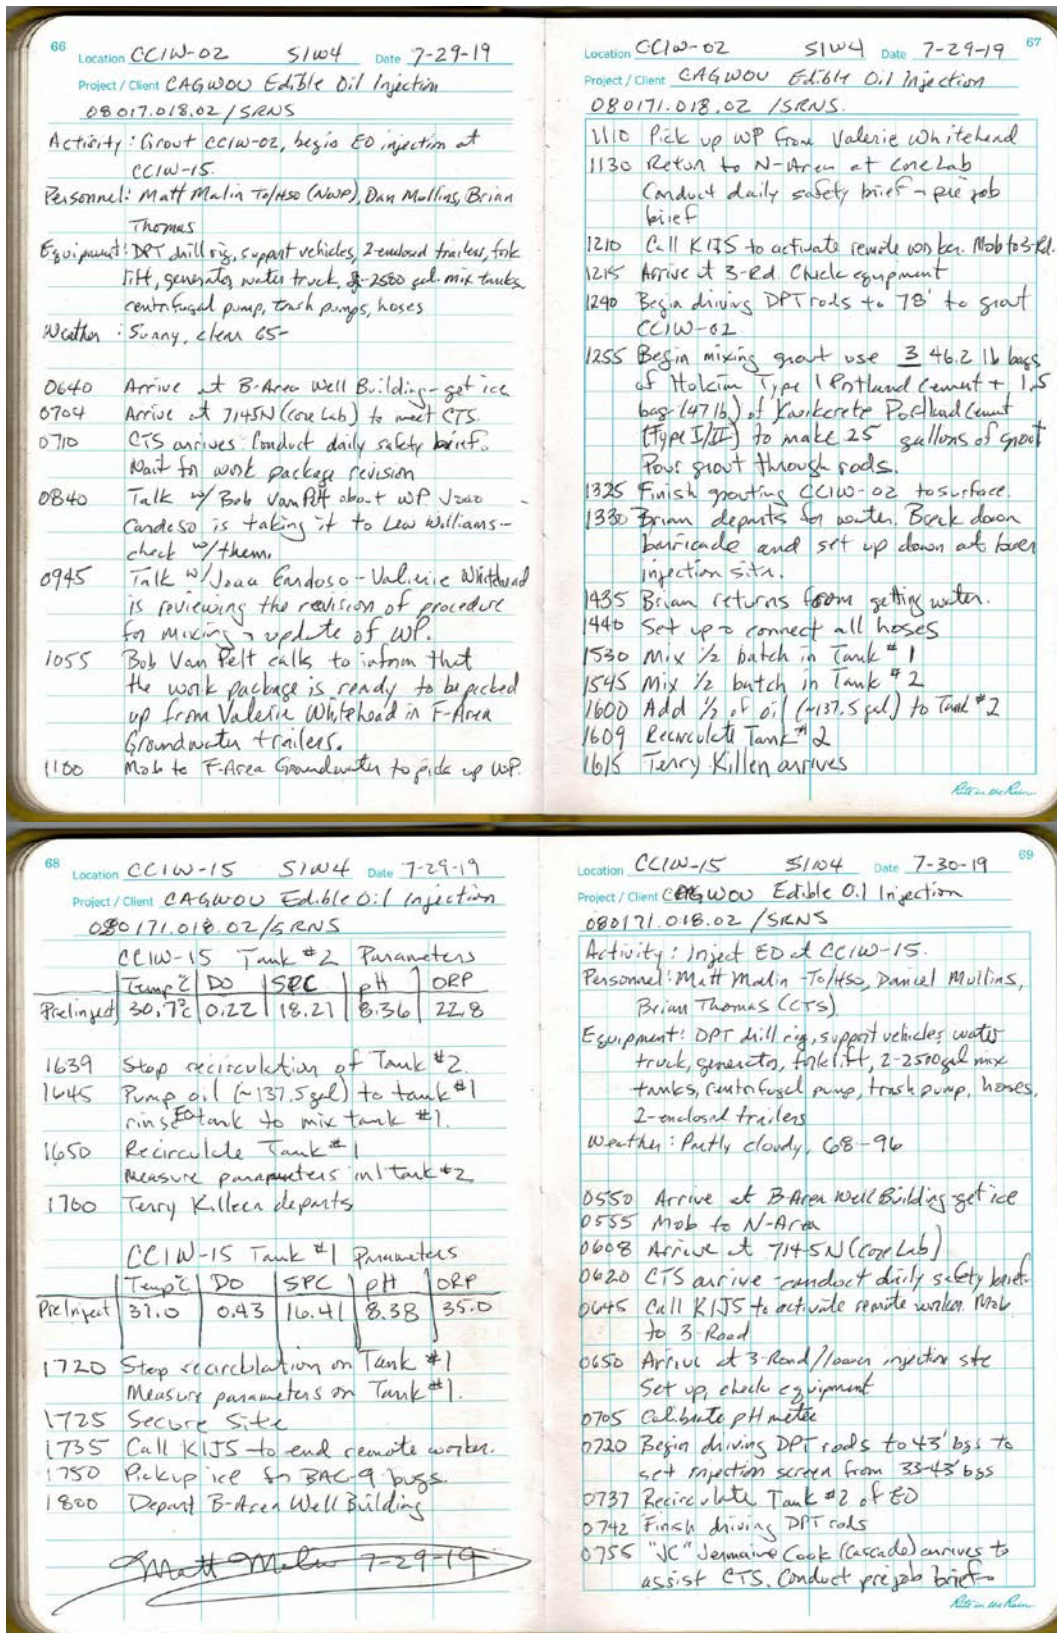 66
Location CCIW-02 SIW4 Date 7-29-19
Project / Client CAGWOU Edible Oil Injection
08017.018.02 /SRNS
Activity: Grout CCIW-02, begin EO injection at
CCIW-15.
Personnel: Matt Malin To/HSO (NWP), Dan Mullins, Brian
Thomas
Equipment: DPT drill rig, support vehicles, 2-enclosed trailers, fork
lift, generator, water truck, 2-2500 gal mix tanks,
centrifugal pump, trash pumps, hoses
Weather: Sunny, clear 65-
0640 Arrive at B-Area Well Building - get ice
0704 Arrive at 7145N (core Lab) to meet CTS.
0710 CTS arrives. Conduct daily safety brief.
Wait for work package revision
0840 Talk w/ Bob Van Pelt about WP. Joao
Cardoso is taking it to Lew Williams-
check w/them.
0945 Talk w/Joao Cardoso - Valerie Whitehead
is reviewing the revision of procedure
for mixing & update of WP.
1055 Bob Van Pelt calls to inform that
the work package is ready to be picked
up from Valerie Whitehead in F-Area
Groundwater trailers.
1100 Mob to F-Area Groundwater to pick up WP.
67
Location CCIW-02 SIW4 Date 7-29-19
Project / Client CAGWOU Edible Oil Injection
080171.018.02 /SRNS.
1110 Pick up WP from Valerie Whitehead
1130 Return to N-Area at Core Lab
Conduct daily safety brief - pre job
brief
1210 Call KIJS to activate remote worker. Mob to 3-Rd.
1215 Arrive at 3-Rd. Check equipment
1240 Begin driving DPT rods to 78' to grout
CCIW-02
1255 Begin mixing grout use 3 46.2 lb bags
of Holcim Type 1 Portland Cement + 1.5
bag (47 lb.) of Kwikcrete Portland Cement
(Type I/II) to make 25 gallons of grout
Pour grout through rods.
1325 Finish grouting CCIW-02 to surface.
1330 Brian departs for water. Break down
barricade and set up down at lower
injection site.
1435 Brian returns from getting water.
1440 Set up & connect all hoses
1530 Mix 1/2 batch in Tank #1
1545 Mix 1/2 batch in Tank #2
1600 Add 1/2 of oil (~137.5 gal) to Tank #2
1609 Recirculate Tank #2
1615 Terry Killen arrives
Rite in the Rain
68
Location CCIW-15 SIW4 Date 7-29-19
Project / Client CAGWOU Edible Oil Injection
080171.018.02/SRNS
CCIW-15 Tank #2 Parameters
Temp°C DO SPC pH ORP
PreInject 30.7°C 0.22 18.21 8.36 22.8
1639 Stop recirculation of Tank #2.
1645 Pump oil (~137.5 gal) to tank #1
rinse EO tank to mix tank #1.
1650 Recirculate Tank #1
Measure parameters in tank #2
1700 Terry Killeen departs
CCIW-15 Tank #1 Parameters
Temp°C DO SPC pH ORP
PreInject 31.0 0.43 16.41 8.38 35.0
1720 Stop recirculation on Tank #1
Measure parameters on Tank #1.
1725 Secure Site
1735 Call KIJS to end remote worker.
1750 Pickup ice for BAC-9 bugs.
1800 Depart B-Area Well Building
Matt Malin 7-29-19
69
Location CCIW-15 SIW4 Date 7-30-19
Project / Client CAGWOU Edible Oil Injection
080171.018.02 /SRNS
Activity: Inject EO at CCIW-15.
Personnel: Matt Malin -To/HSO, Daniel Mullins,
Brian Thomas (CTS)
Equipment: DPT drill rig, support vehicles, water
truck, generator, forklift, 2-2500gal mix
tanks, centrifugal pump, trash pump, hoses,
2-enclosed trailers
Weather: Partly cloudy, 68-96
0550 Arrive at B-Area Well Building-get ice
0555 Mob to N-Area
0608 Arrive at 7145N (Core Lab)
0620 CTS arrive - conduct daily safety brief.
0645 Call KIJS to activate remote worker. Mob
to 3-Road
0650 Arrive at 3-Road/lower injection site
Set up, check equipment
0705 Calibrate pH meter
0720 Begin driving DPT rods to 43' bgs to
set injection screen from 33-43' bgs
0737 Recirculate Tank #2 of EO
0742 Finish driving DPT rods
0755 "JC" Jermaine Cook (Cascade) arrives to
assist CTS. Conduct prejob brief.
Rite in the Rain